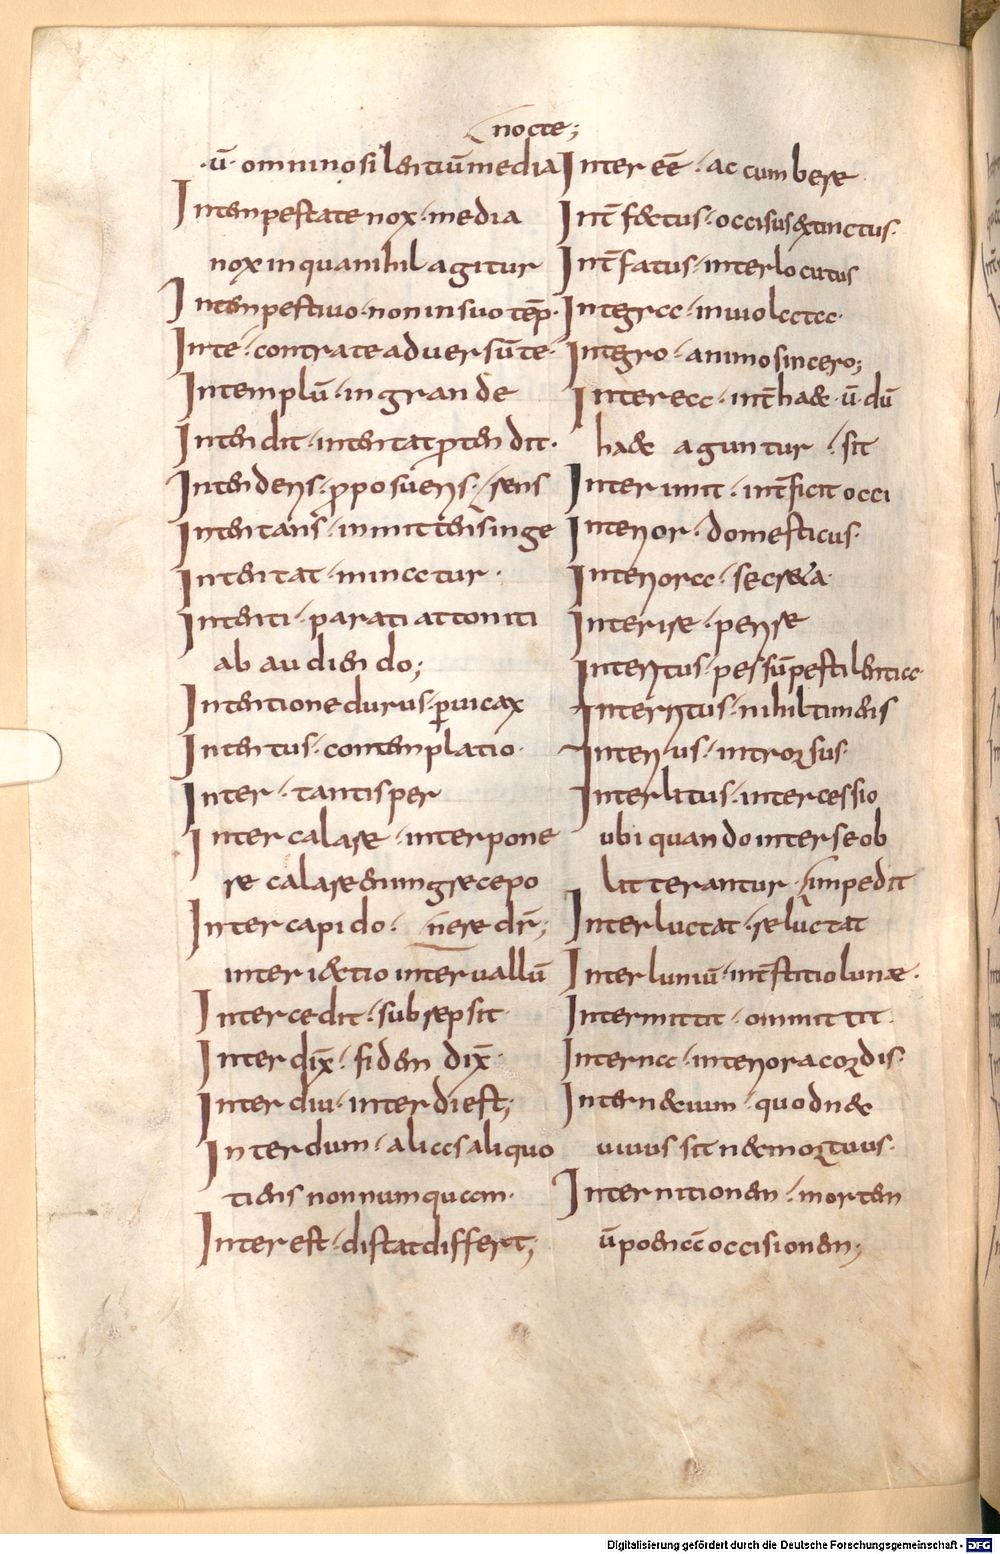 nocte;
·ū· omnino silentiū media
Intempestate nox · media
nox in qua nihil agitur
Intempestiuo · non in suo tēp·
In te · contra te aduersū te·
In templū · in grande
Intendit · intentat ꝓtendit·
Intendens · ꝓposuens · sens
Intentans · inmittens inge
Intentat · minatur ·
Intenti · parati attoniti
ab audiendo;
Intentione durus · ꝑuicax
Intentus · contemplatio·
Inter · tantisper
Intercalare · interpone
re calare enim grece po
Intercapido · nere dr̄;
interiectio interuallū
Intercedit · subrepsit·
Interdix̄ · fidem dix̄·
Interdiu · inter die st;
Interdum · alias aliquo
tiens nonnumquam·
Interest · distat differt;
Interēē · accumbere·
Int̄fectus · occisus extinctus·
Int̄fatus · interlocutus
Integra · inuiolata·
Integro · animo sincero;
Interea · int̄ haec ·ū· dū
haec aguntur · sit
Interimit · int̄ficit occi
Interior · domesticus·
Interiora · secreta·
Interire · perire
Interitus · pessū pestilentia·
Interritus · nihil timens
Interius · introrsus·
Interlitus · intercessio
ubi quando inter se ob
litterantur · impedit
Interluctat · reluctat
Interluniū · int̄stitio lunae·
Intermittit · ommittit·
Interna · interiora cordis·
Internecium · quod nec
uiuus sit nec mortuus·
Internitionem · mortem
ū poena occisionem;
Digitalisierung gefördert durch die Deutsche Forschungsgemeinschaft - DFG